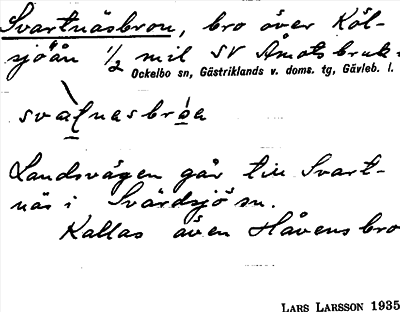 Svartnäsbron, bro över Köl-
sjöån 1/2 mil SV Åmots bruk.
Ockelbo sn, Gästriklands v. doms. tg, Gävleb. l.
Landsvägen går till Svart-
näs i Svärdsjö sn.
Kallas även Håvensbro
LARS LARSSON 1935